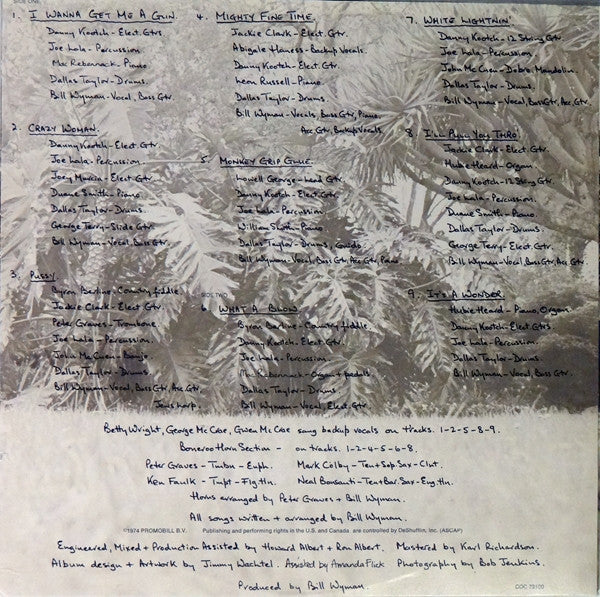 SIDE ONE
1. I WANNA GET ME A GUN.
Danny Kootch - Elect. Gtrs
Joe Lala - Percussion.
Mac Rebennack - Piano
Dallas Taylor - Drums.
Bill Wyman - Vocal, Bass Gtr
2. CRAZY WOMAN.
Danny Kootch - Elect. Gtr.
Joe Lala - Percussion.
Joey Murcia - Elect. Gtr
Duane Smith - Piano.
Dallas Taylor - Drums.
George Terry - Slide Gtr
Bill Wyman - Vocal, Bass Gtr.
3. PUSSY.
Byron Berline - Country fiddle.
Jackie Clark - Elect. Gtr
Peter Graves - Trombone.
Joe Lala - Percussion.
John McCuen - Banjo.
Dallas Taylor - Drums.
Bill Wyman - Vocal, Bass Gtr, Acc Gtr.
Jews harp.
4. MIGHTY FINE TIME.
Jackie Clark - Elect. Gtr.
Abigale Haness - Backup Vocals.
Danny Kootch - Elect. Gtr.
Leon Russell - Piano
Dallas Taylor - Drums
Bill Wyman - Vocals, Bass Gtr, Piano.
Acc Gtr, Backup Vocals.
5. MONKEY GRIP GLUE.
Lowell George - Lead Gtr.
Danny Kootch - Elect. Gtr.
Joe Lala - Percussion
William Smith - Piano
Dallas Taylor - Drums, Guido
Bill Wyman - Vocal, Bass Gtr, Acc Gtr, Piano
SIDE TWO
6. WHAT A BLOW.
Byron Berline - Country fiddle.
Danny Kootch - Elect. Gtr.
Joe Lala - Percussion.
Mac Rebennack - Organ + pedals.
Dallas Taylor - Drums
Bill Wyman - Vocal, Elect. Gtr.
7. WHITE LIGHTNIN'.
Danny Kootch - 12 String Gtr.
Joe Lala - Percussion
John McCuen - Dobro, Mandolin.
Dallas Taylor - Drums.
Bill Wyman - Vocal, Bass Gtr, Acc. Gtr.
8. I'LL PULL YOU THRO.
Jackie Clark - Elect. Gtr.
Hubie Heard - Organ
Danny Kootch - 12 String Gtr.
Joe Lala - Percussion.
Duane Smith - Piano.
Dallas Taylor - Drums.
George Terry - Elect. Gtr.
Bill Wyman - Vocal, Bass Gtr, Acc Gtr
9. IT'S A WONDER.
Hubie Heard - Piano, Organ.
Danny Kootch - Elect. Gtrs.
Joe Lala - Percussion.
Dallas Taylor - Drums.
Bill Wyman - Vocal, Bass Gtr.
Betty Wright, George McCrae, Gwen McCrae sang backup vocals on tracks. 1-2-5-8-9.
Bonaroo Horn Section - on tracks. 1-2-4-5-6-8.
Peter Graves - Tmbn - Euph. Mark Colby - Ten + Sop. Sax - Clnt.
Ken Faulk - Tmpt - Flg. Hn. Neal Bonsanti - Ten + Bar. Sax - Eng. Hn.
Horns arranged by Peter Graves + Bill Wyman.
All songs written + arranged by Bill Wyman.
©1974 PROMOBILL B.V. Publishing and performing rights in the U.S. and Canada are controlled by DeShufflin, Inc. (ASCAP)
Engineered, Mixed + Production Assisted by Howard Albert + Ron Albert. Mastered by Karl Richardson.
Album design + Artwork by Jimmy Wachtel. Assisted by Amanda Flick Photography by Bob Jenkins.
Produced by Bill Wyman.
COC 79100